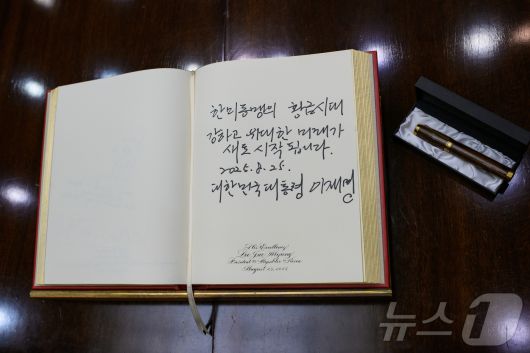 한미동맹의 황금시대
강하고 위대한 미래가
새로 시작됩니다.
2025. 8. 25.
대한민국 대통령 이재명
His Excellency
Lee Jae Myung
President of the Republic of Korea
August 25, 2025
뉴스1